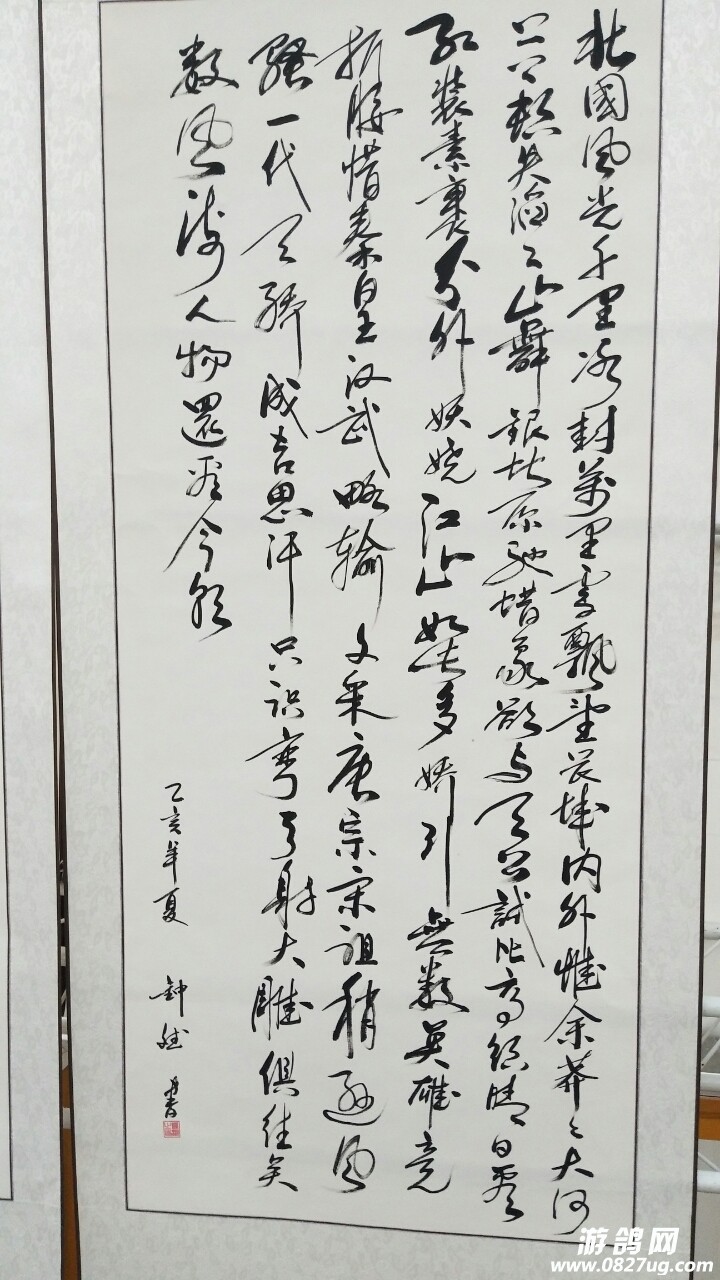 北國风光千里冰封萬里雪飘望长城内外惟余莽々大河
上下顿失滔々山舞银蛇原驰蜡象欲与天公試比高须晴日看
红装素裹分外妖娆江山如此多娇引無数英雄竞
折腰惜秦皇汉武略输文采唐宗宋祖稍逊风
骚一代天骄成吉思汗只识弯弓射大雕俱往矣
数风流人物還看今朝
乙亥年夏 钟 书
游鸽网
www.0827ug.com